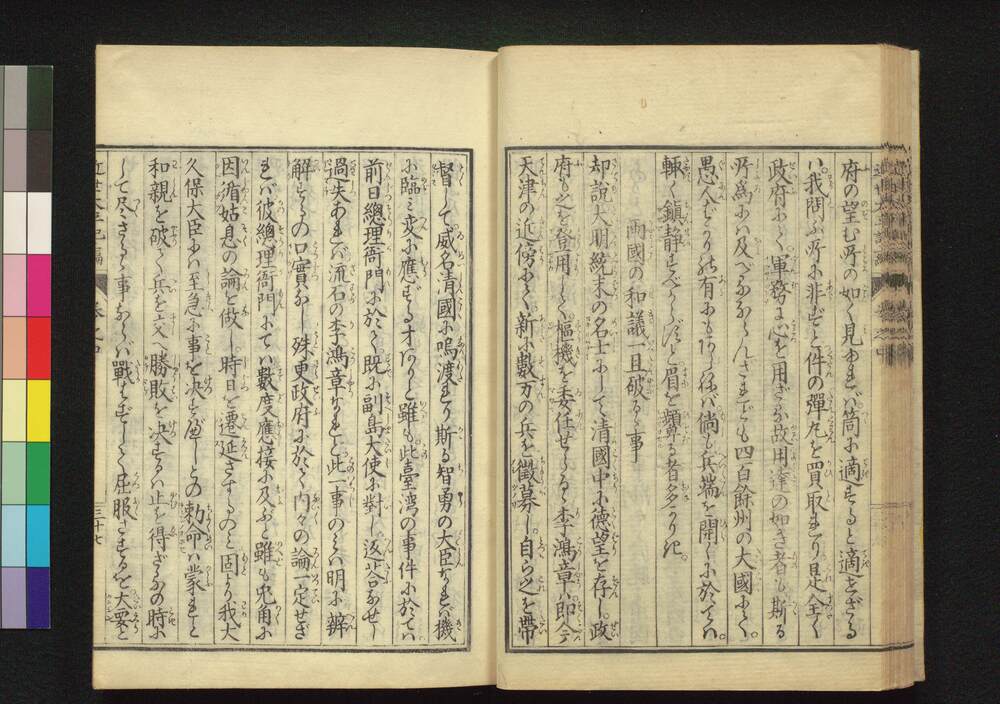 府の望む所の如く見ゆれバ筒に適するると適せざる
ハ。我関ふ所に非ずと件の弾丸を買取れり是全く
政府にて軍務に心を用ざる故用達の如き者も斯る
所為にハ及べるならんさまでも四百餘州の大國にて。
愚人バかり有にもあらねバ倘も兵端を開くに於てハ。
輙く鎮静すべからずと眉を顰る者多かりき。
両國の和議一旦破るゝ事
却説大明統末の名士にして清國中に徳望を存し。政
府も之を登用して枢機を委任せらるゝ李鴻章ハ即今
天津の近傍にて新に數万の兵を徴募し。自ら之を帶
督して威名清國に鳴渡れり斯る智勇の大臣なれバ機
に臨ミ変に應ずる才ありと雖も此臺湾の事件に於てハ
前日總理衙門に於て既に副島大使に對し返答なせし
過失あれバ流石の李鴻章なれど此一事のミハ明に辨
解するの口實なし殊更政府に於て内々の論一定せざ
れバ彼總理衙門にてハ數度應接に及ぶと雖も兎角に
因循姑息の論を做し時日を遷延さするのミ固より我大
久保大臣にハ至急に事を决すべしとの勅命ハ蒙れど
和親を破て兵を交へ勝敗を决するハ止を得ざるの時に
して尽さるゝ事ならバ戰はずして屈服さするを大要と
近世太平記 編 巻之四 三十七